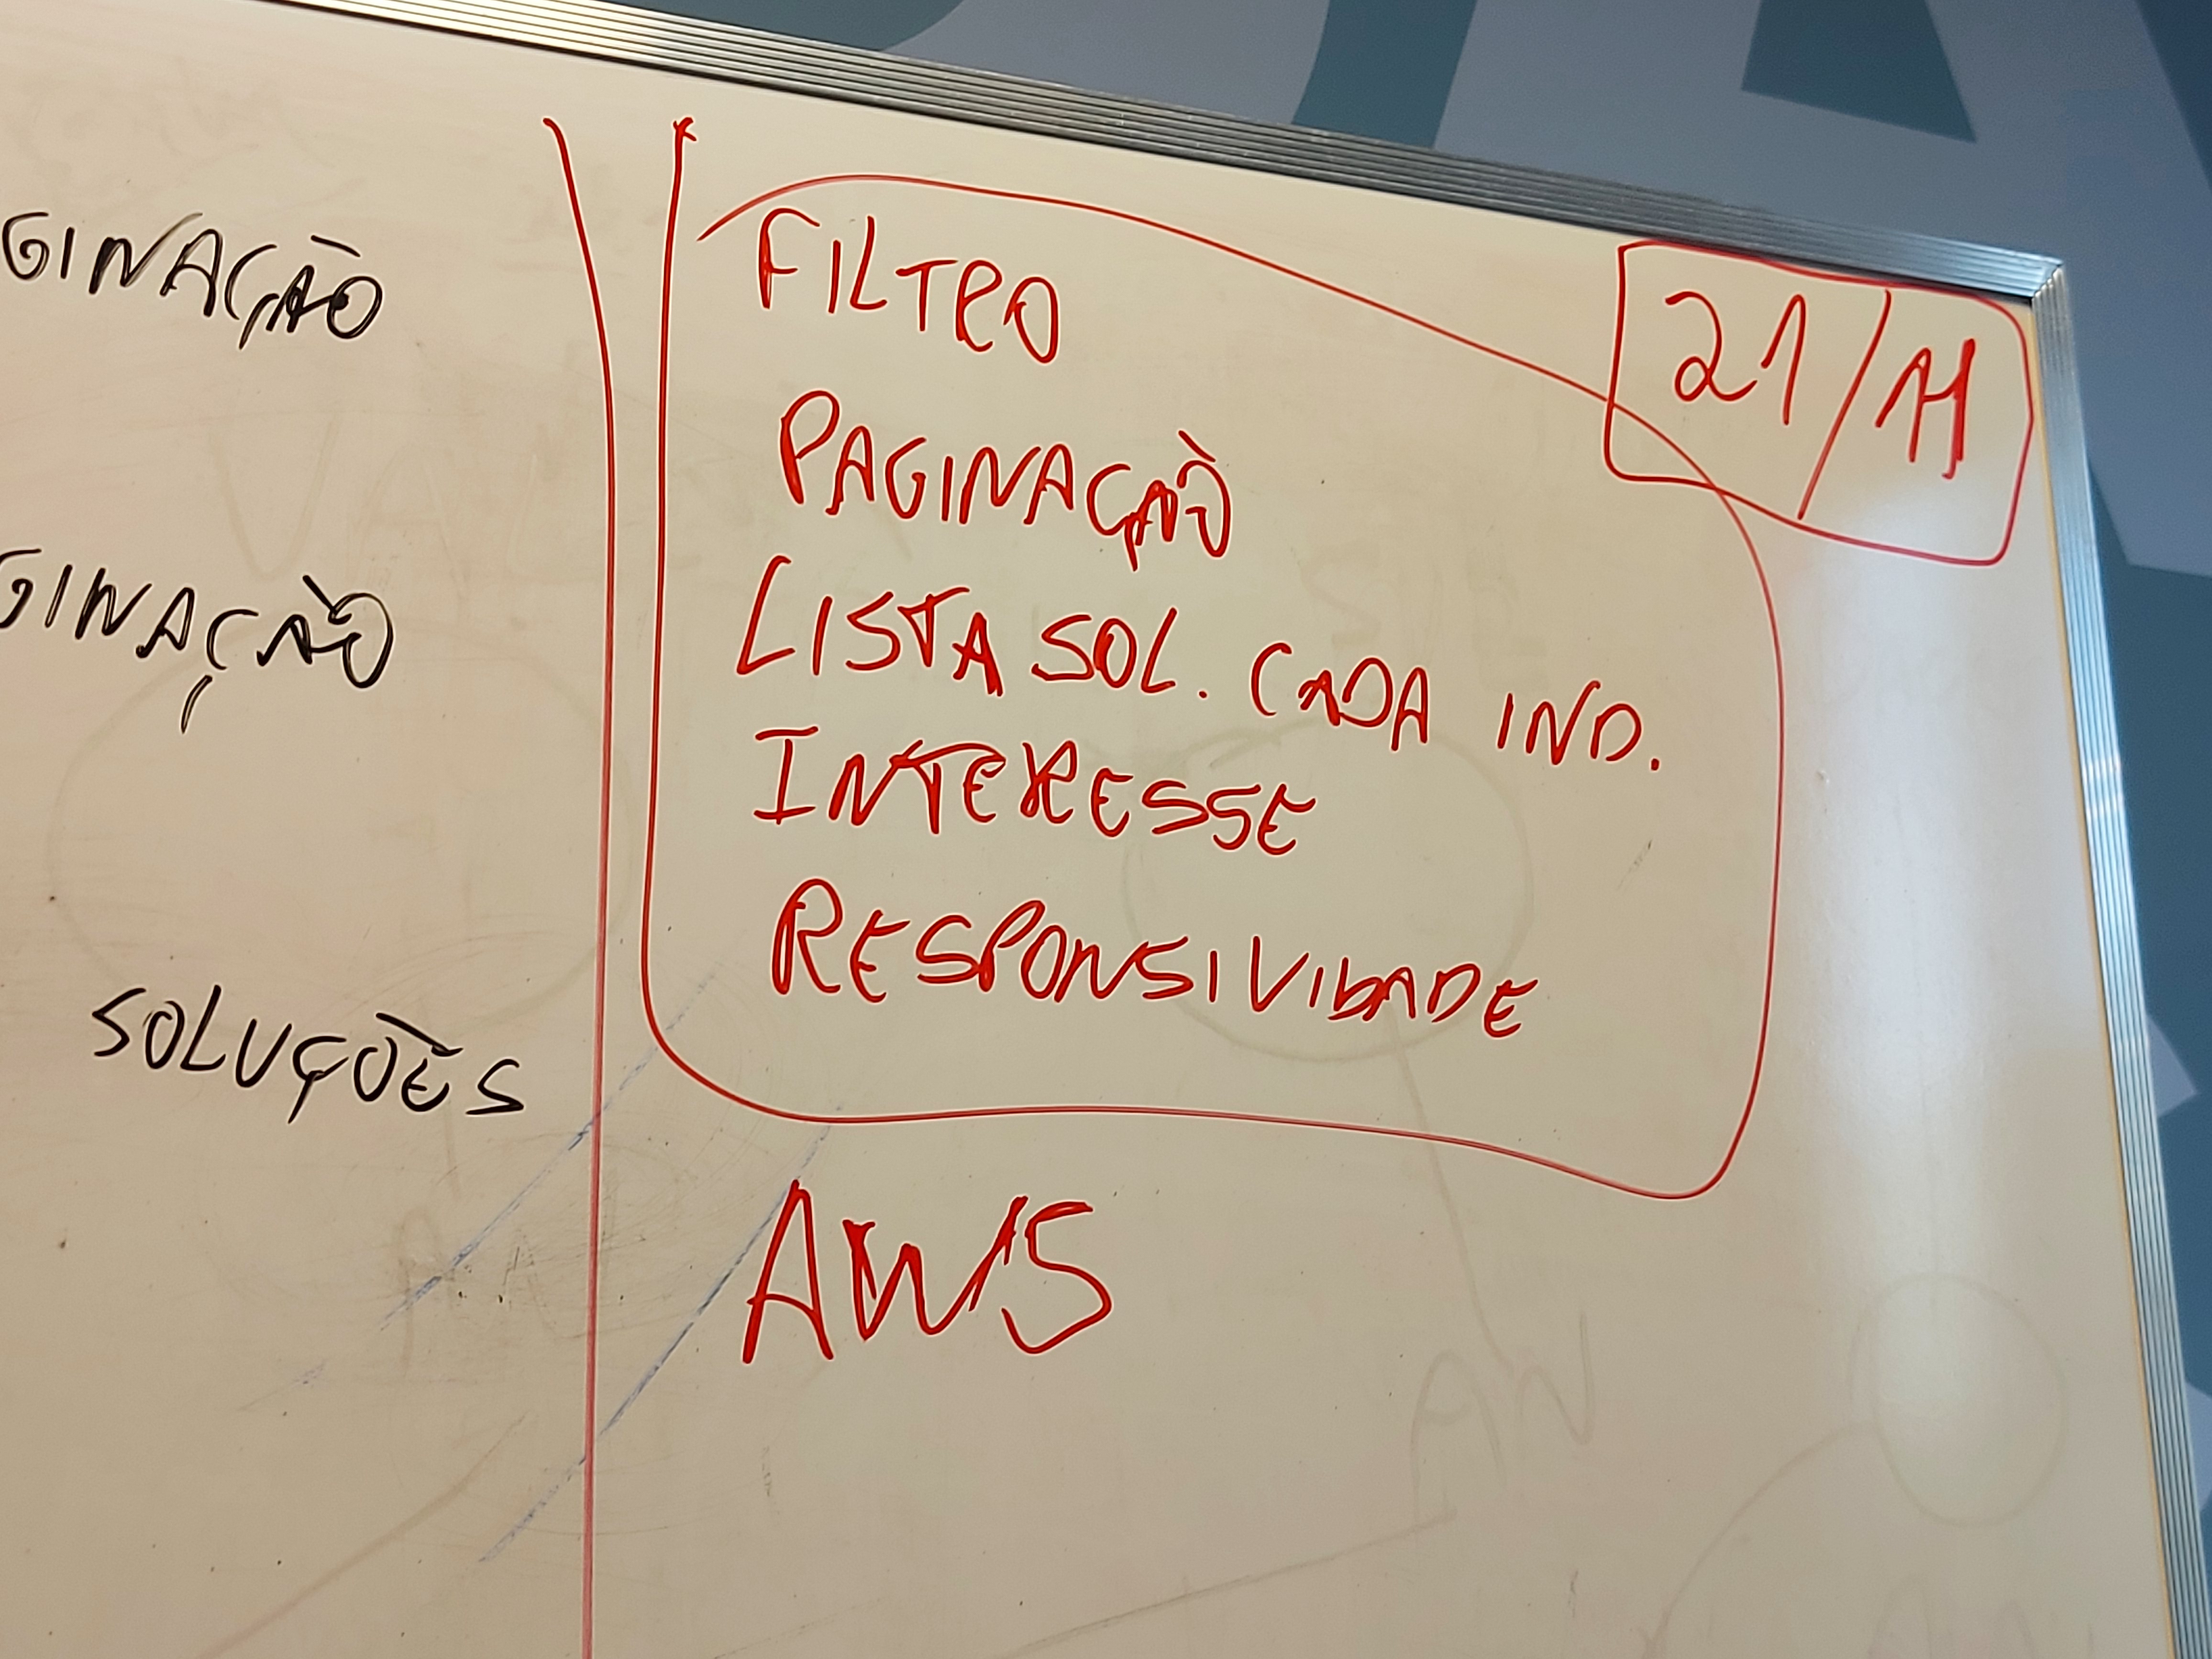 GINAÇÃO
GINAÇÃO
SOLUÇÕES
21/11
FILTRO
PAGINAÇÃO
LISTA SOL. CADA IND.
INTERESSE
RESPONSIVIDADE
AWS